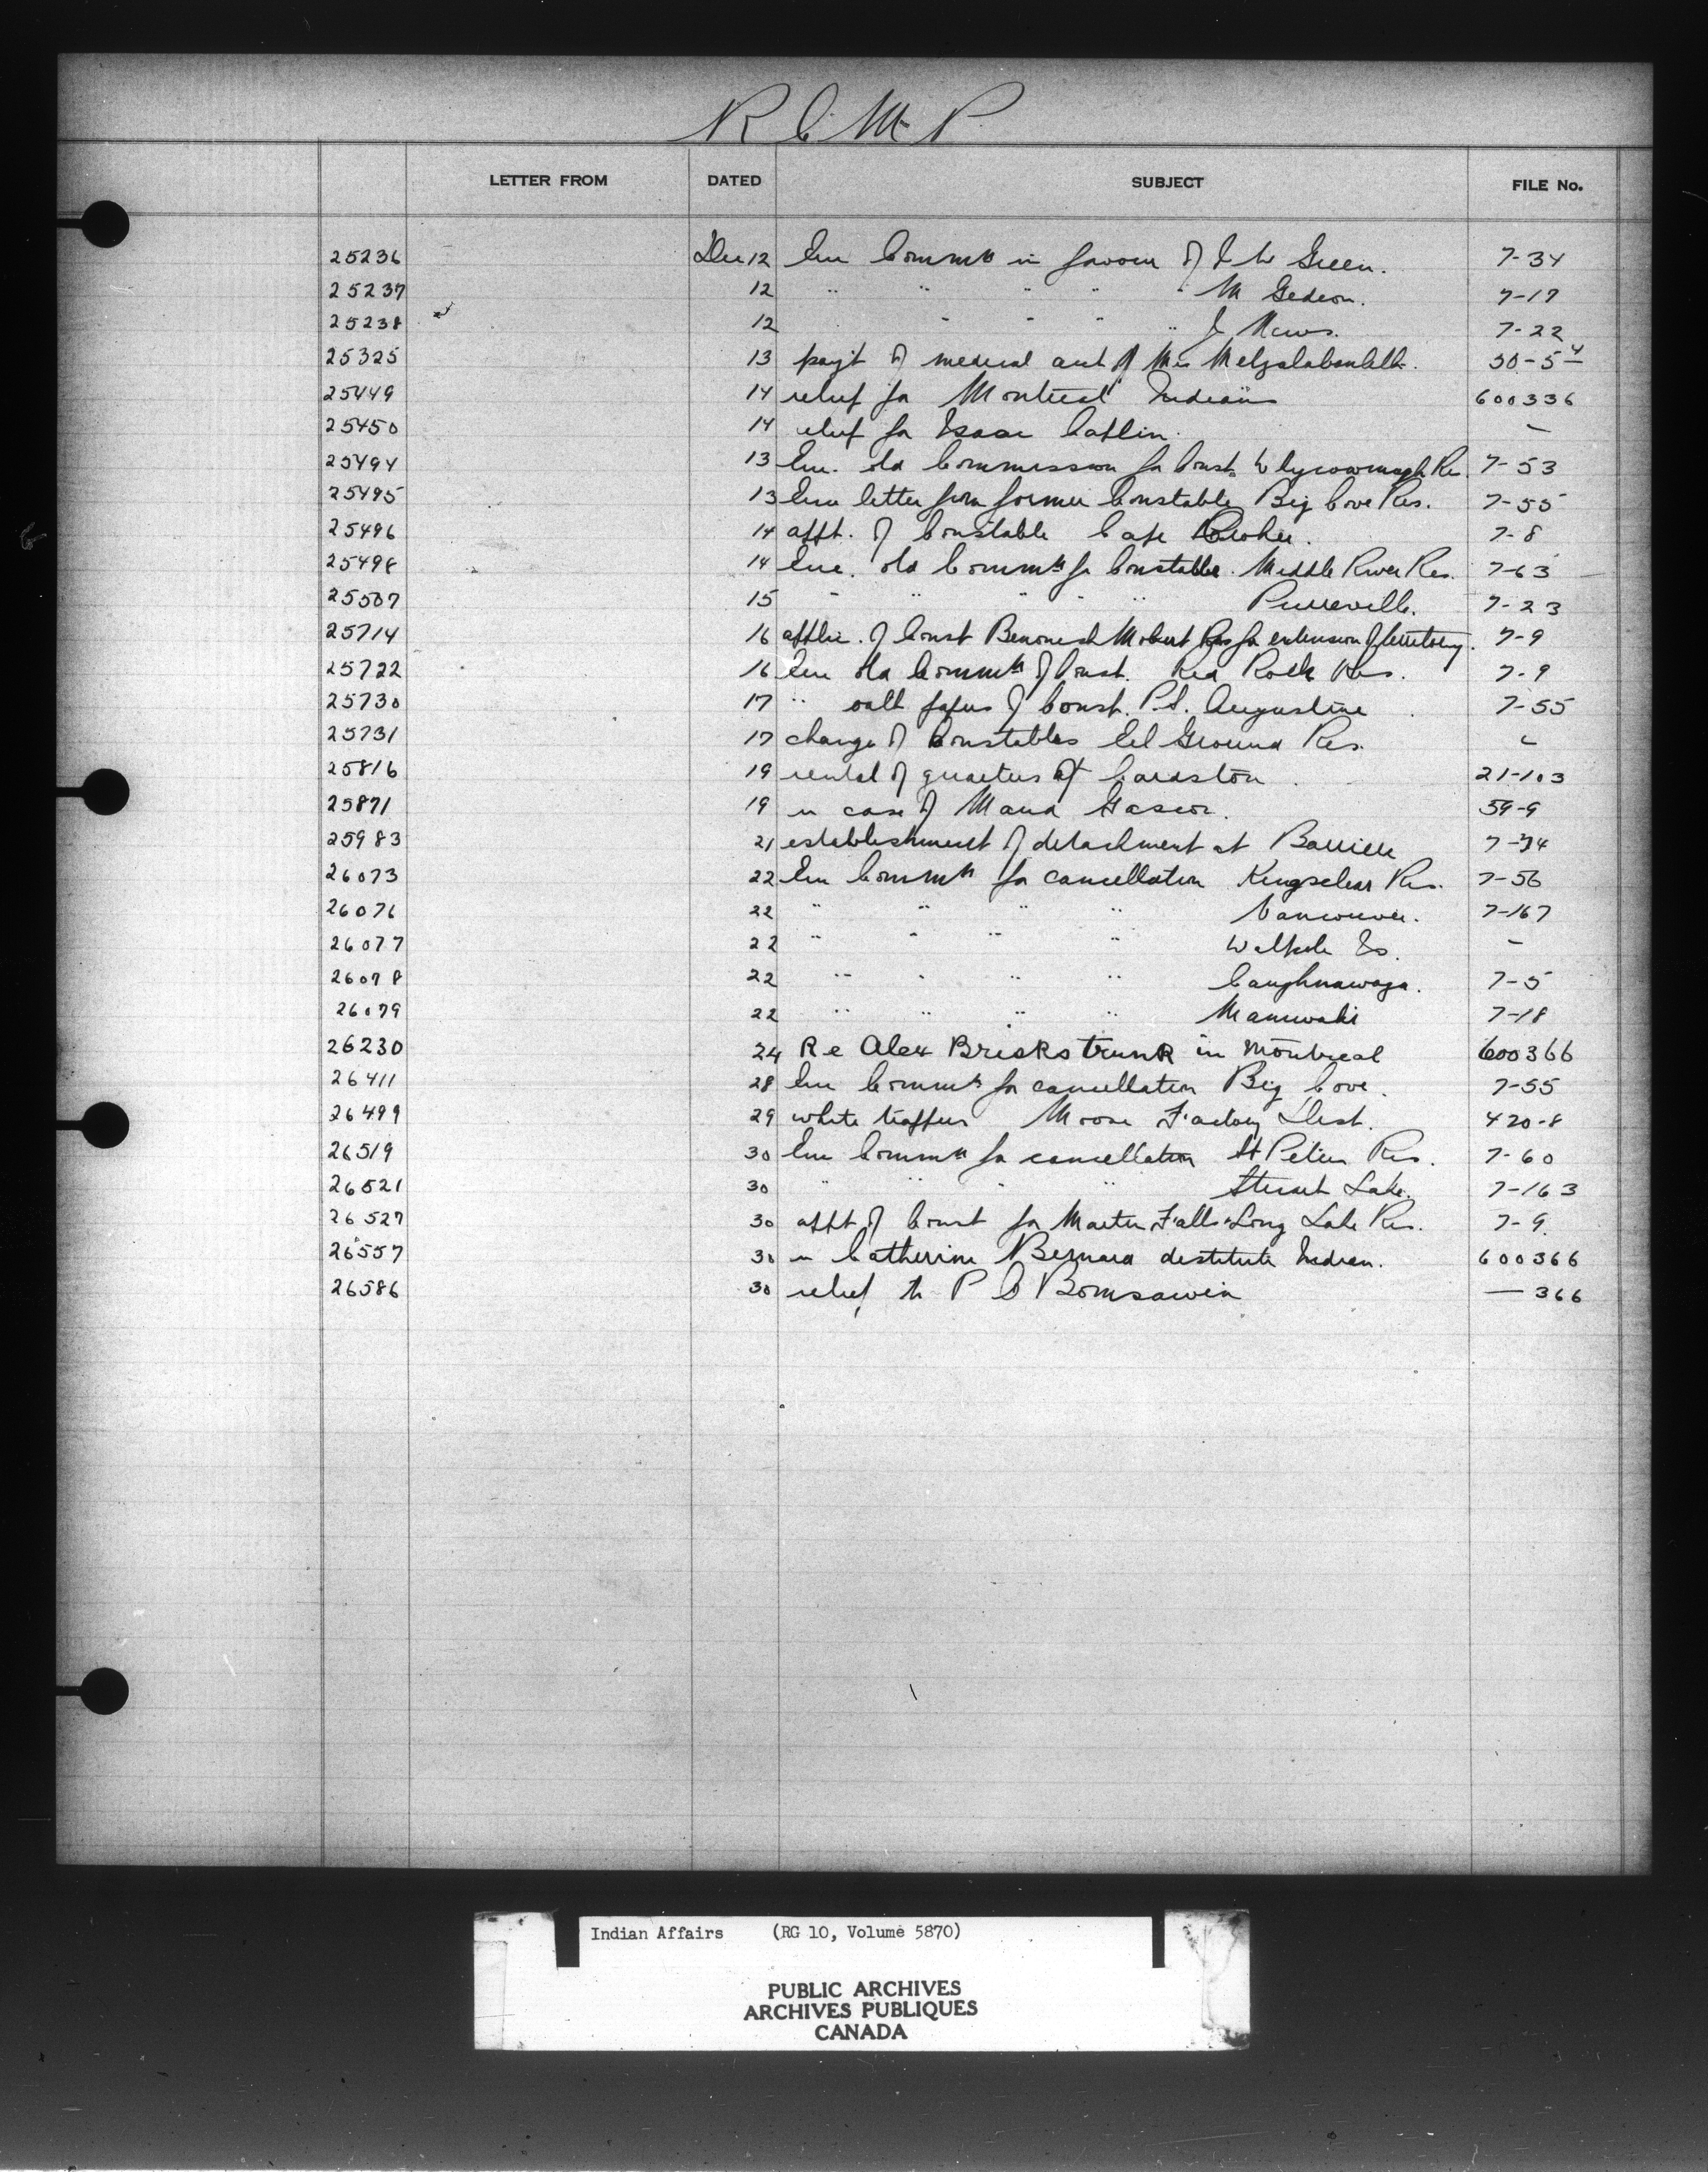 R.C.M.P.
LETTER FROM DATED SUBJECT FILE No.
25236 Dec 12 Enc Commn in favour of Green. 7-34
25237 12 " " " " " M Gedeon. 7-17
25238 12 " " " " J 7-22
25325 13 payt of medical acct of Mrs 30-5-4
25449 14 relief for Montreal Indians 600336
25450 14 relief for Isaac Catlin. -
25494 13 Enc. old Commission for Const. Whycocomagh Res. 7-53
25495 13 Enc letter from former Constable Big Cove Res. 7-55
25496 14 appt. of Constable Cape Croker. 7-8
25498 14 Enc. old Commn for Constable Middle River Res. 7-63
25507 15 " " " " " Pierreville. 7-23
25714 16 applic. of Const Mobert Res for extension of territory. 7-9
25722 16 Enc old Commn of Const. Red Rock Res. 7-9
25730 17 " oath papers of Const. P.S. Augustine 7-55
25731 17 change of Constables Eel Ground Res. "
25816 19 rental of quarters at Cardston 21-103
25871 19 in case of 59-9
25983 21 establishment of detachment at Barriere 7-34
26073 22 Enc Commn for cancellation Kingsclear Res. 7-56
26076 22 " " " " Vancouver. 7-167
26077 22 " " " " Walpole Is. -
26078 22 " " " " Caughnawaga. 7-5
26079 22 " " " " Maniwaki 7-18
26230 24 Re Alex Brisks trunk in Montreal 600366
26411 28 Enc Commn for cancellation Big Cove. 7-55
26499 29 white trappers Moose Factory Dist. 420-8
26519 30 Enc Commn for cancellation St Peters Res. 7-60
26521 30 " " " " Stuart Lake. 7-163
26527 30 appt of Const for Marten Falls & Long Lake Res. 7-9.
26557 30 in Catherine Bernard destitute Indian. 600366
26586 30 relief to P C Bomsawin — 366
Indian Affairs (RG 10, Volume 5870)
PUBLIC ARCHIVES
ARCHIVES PUBLIQUES
CANADA